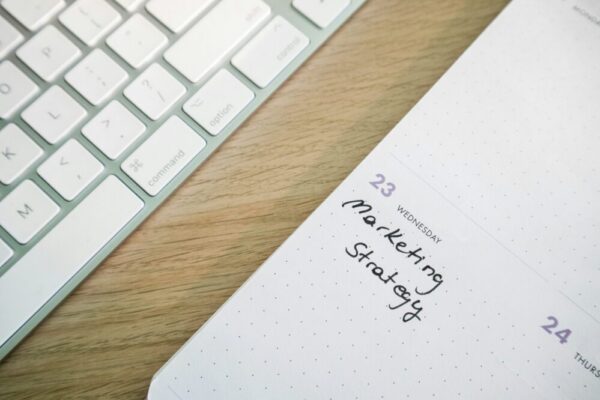 O
P
{ [
K
L
: ;
" '
M
< ,
> .
? /
shift
⌘
command
⌥
option
^
control
23
WEDNESDAY
Marketing
Strategy
24
THURS